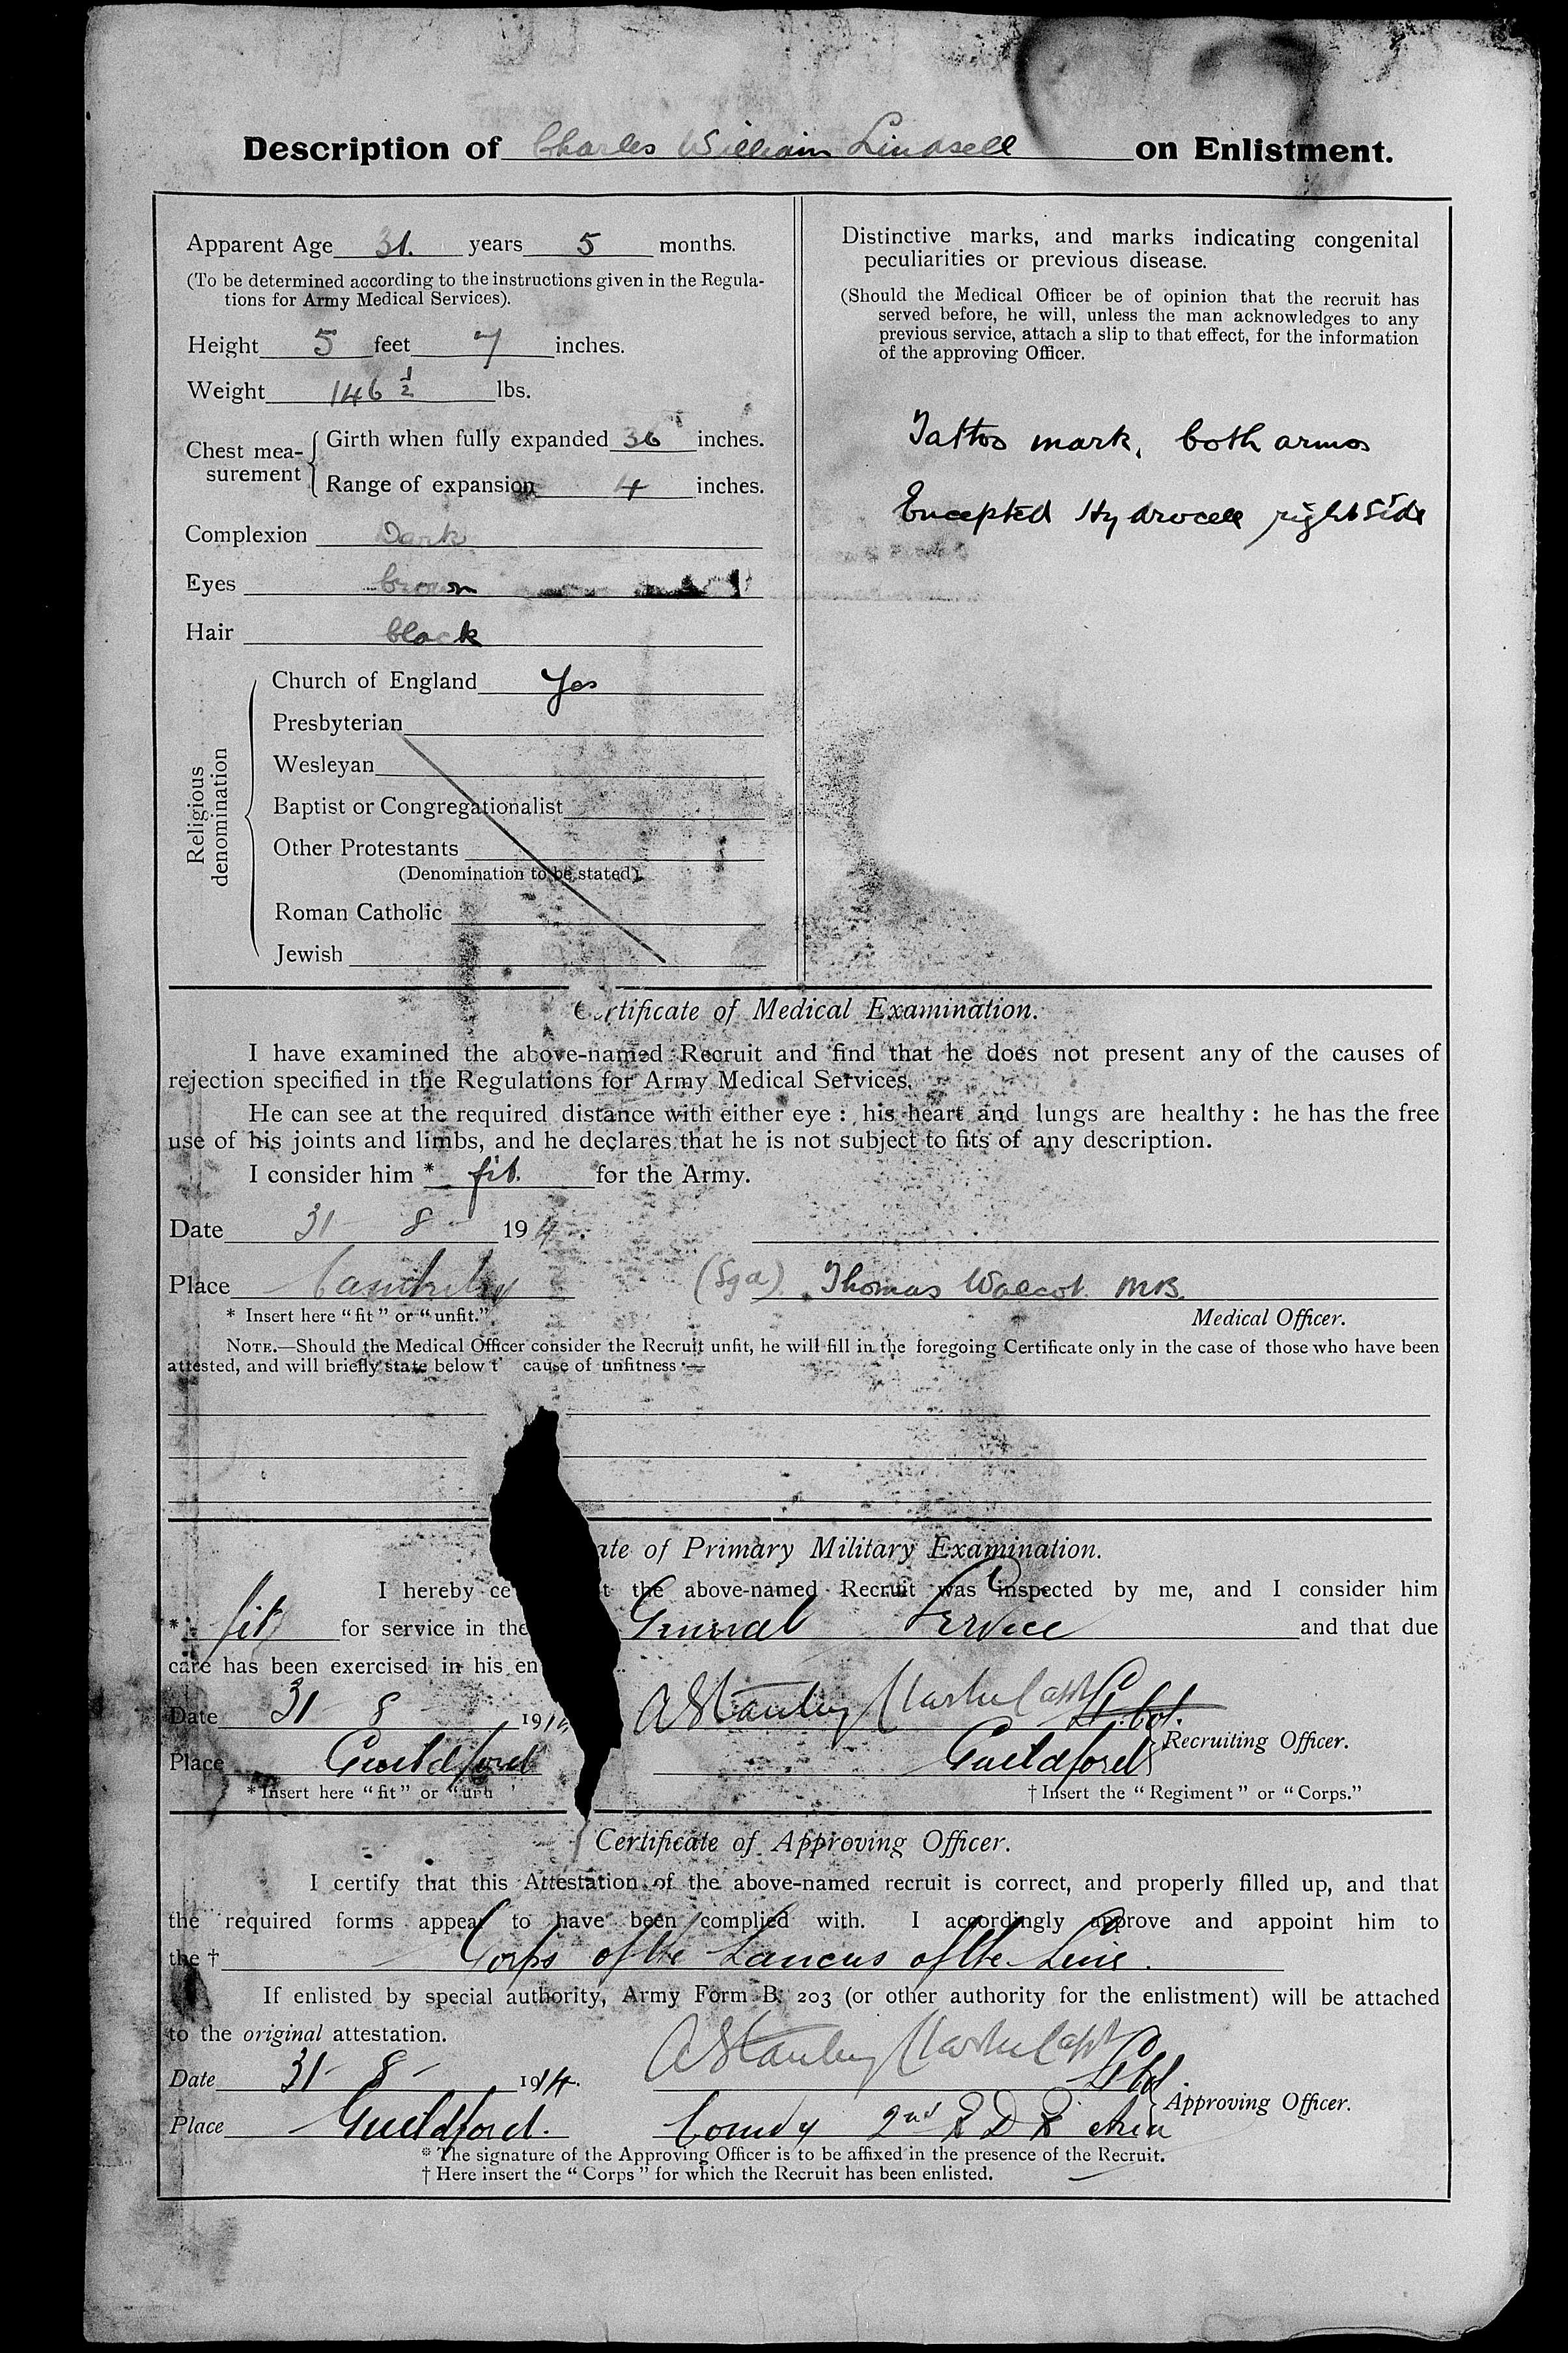 Description of Charles William Lindsell on Enlistment.
Apparent Age 31. years 5 months.
(To be determined according to the instructions given in the Regula-
tions for Army Medical Services).
Height 5 feet 7 inches.
Weight 146 ½ lbs.
Chest mea-
surement
Girth when fully expanded 36 inches.
Range of expansion 4 inches.
Complexion Dark
Eyes brown
Hair black
Religious
denomination
Church of England Yes
Presbyterian
Wesleyan
Baptist or Congregationalist
Other Protestants
(Denomination to be stated).
Roman Catholic
Jewish
Distinctive marks, and marks indicating congenital
peculiarities or previous disease.
(Should the Medical Officer be of opinion that the recruit has
served before, he will, unless the man acknowledges to any
previous service, attach a slip to that effect, for the information
of the approving Officer.
Tattoo mark, both arms
Hydrocele right side
Certificate of Medical Examination.
I have examined the above-named Recruit and find that he does not present any of the causes of
rejection specified in the Regulations for Army Medical Services.
He can see at the required distance with either eye : his heart and lungs are healthy : he has the free
use of his joints and limbs, and he declares that he is not subject to fits of any description.
I consider him * fit. for the Army.
Date 31 - 8 - 1914
Place (Sgd) Thomas Walcot MB.
* Insert here "fit" or "unfit." Medical Officer.
NOTE.—Should the Medical Officer consider the Recruit unfit, he will fill in the foregoing Certificate only in the case of those who have been
attested, and will briefly state below t cause of unfitness :—
ate of Primary Military Examination.
I hereby ce t the above-named Recruit was inspected by me, and I consider him
* fit for service in the General Service and that due
care has been exercised in his en
Date 31 8 1914 A Stanley Capt
Lt. Col.
Recruiting Officer.
Place Guildford Guildford
* Insert here "fit" or "unfi † Insert the "Regiment" or "Corps."
Certificate of Approving Officer.
I certify that this Attestation of the above-named recruit is correct, and properly filled up, and that
the required forms appear to have been complied with. I accordingly approve and appoint him to
the † Corps of the Lancers of the Line.
If enlisted by special authority, Army Form B. 203 (or other authority for the enlistment) will be attached
to the original attestation.
Date 31 - 8 - 1914. A Stanley Capt
Lt Col.
Approving Officer.
Place Guildford. Comdg 2nd R D Area
* The signature of the Approving Officer is to be affixed in the presence of the Recruit.
† Here insert the "Corps" for which the Recruit has been enlisted.